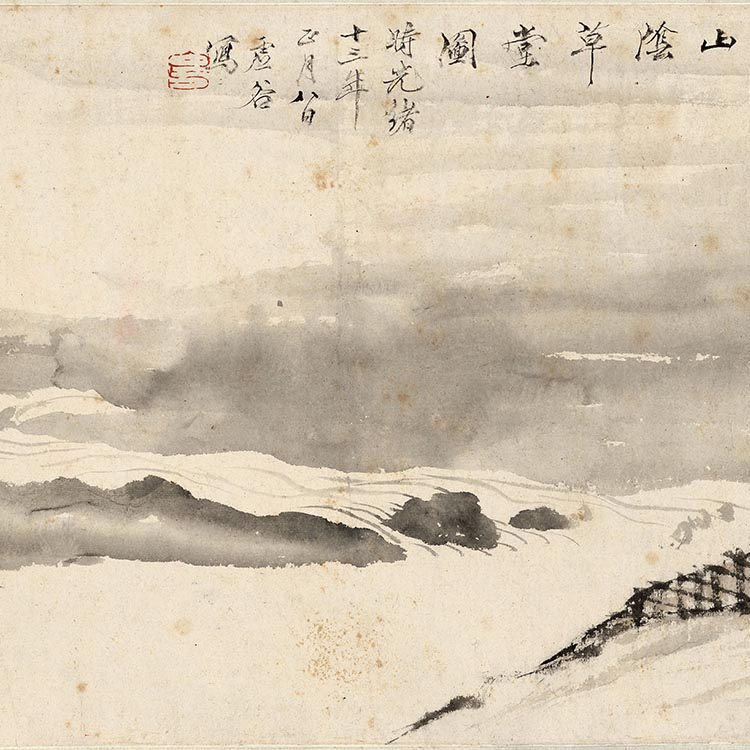 山陰草堂圖
時光緒
十三年
正月八日
虛谷
寫